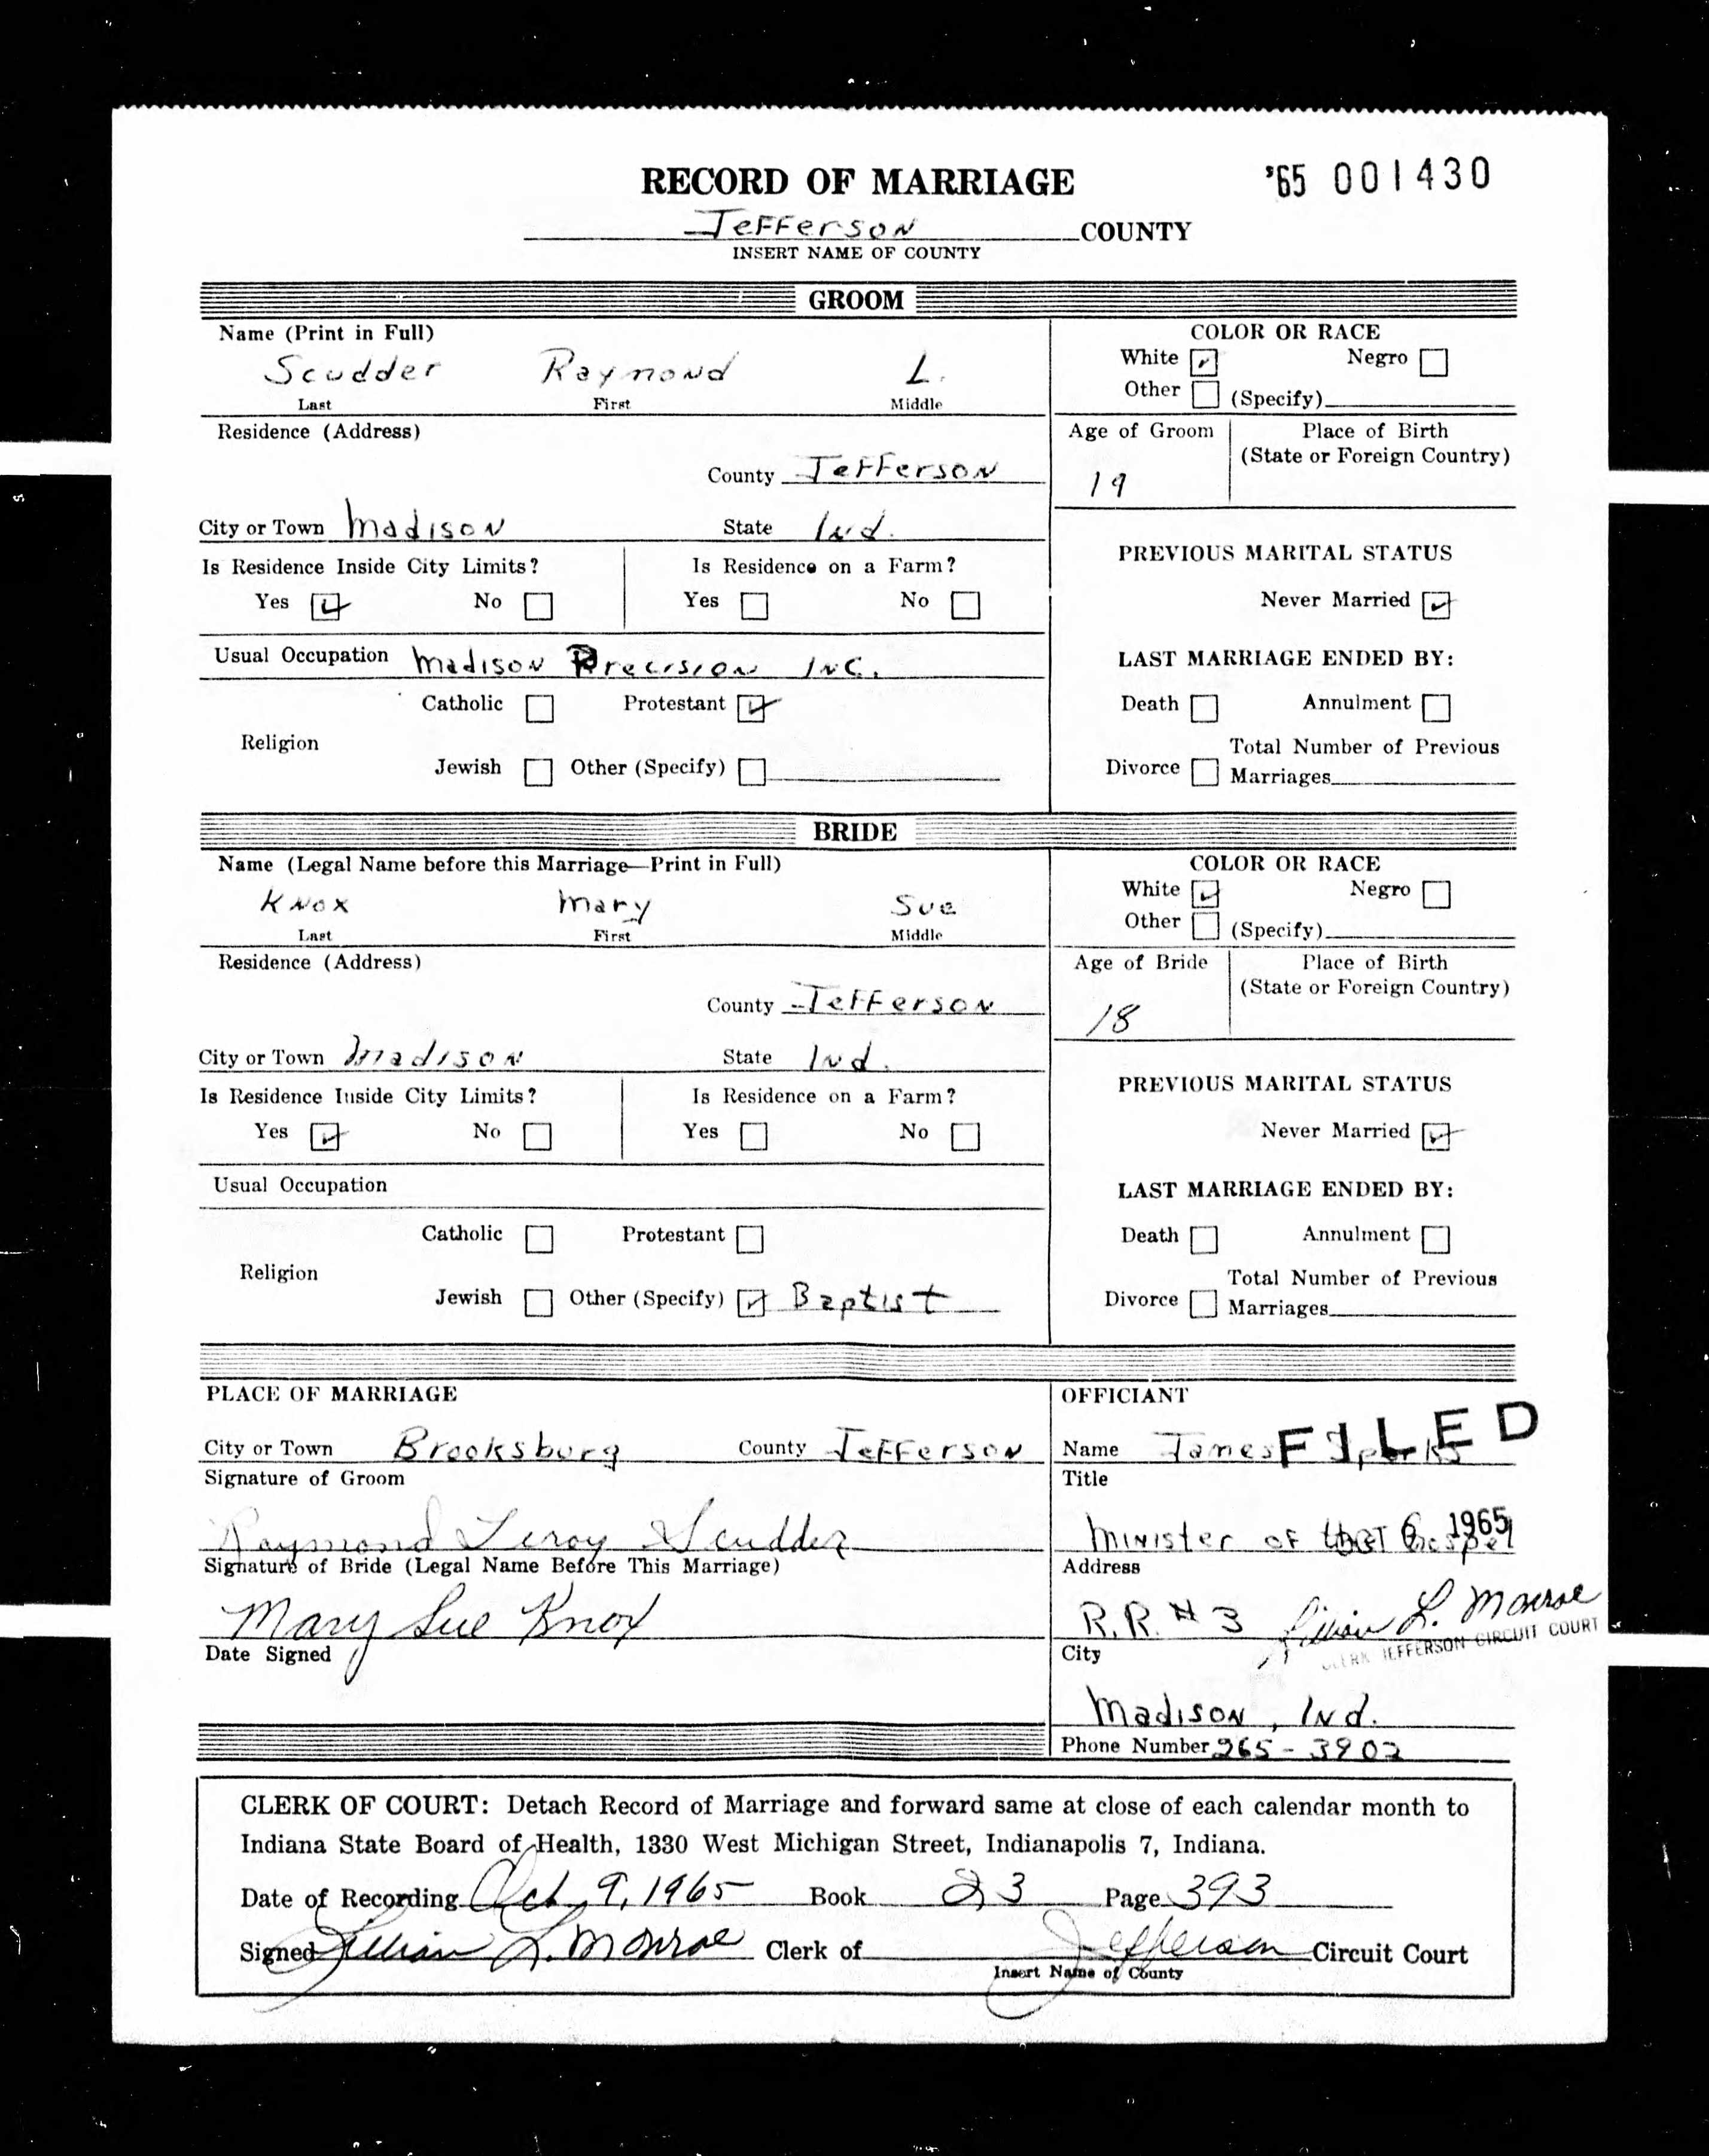 RECORD OF MARRIAGE
'65 001430
Jefferson COUNTY
INSERT NAME OF COUNTY
GROOM
Name (Print in Full)
Scudder Raymond L.
Last First Middle
COLOR OR RACE
White Negro
Other (Specify)
Residence (Address)
County Jefferson
City or Town Madison State Ind.
Age of Groom
19
Place of Birth
(State or Foreign Country)
Is Residence Inside City Limits? Is Residence on a Farm?
Yes No Yes No
PREVIOUS MARITAL STATUS
Never Married
Usual Occupation Madison Precision Inc.
LAST MARRIAGE ENDED BY:
Catholic Protestant
Religion
Jewish Other (Specify)
Death Annulment
Total Number of Previous
Divorce Marriages
BRIDE
Name (Legal Name before this Marriage—Print in Full)
Knox Mary Sue
Last First Middle
COLOR OR RACE
White Negro
Other (Specify)
Residence (Address)
County Jefferson
City or Town Madison State Ind.
Age of Bride
18
Place of Birth
(State or Foreign Country)
Is Residence Inside City Limits? Is Residence on a Farm?
Yes No Yes No
PREVIOUS MARITAL STATUS
Never Married
Usual Occupation
LAST MARRIAGE ENDED BY:
Catholic Protestant
Religion
Jewish Other (Specify) Baptist
Death Annulment
Total Number of Previous
Divorce Marriages
PLACE OF MARRIAGE
City or Town Brooksburg County Jefferson
Signature of Groom
Raymond Leroy Scudder
Signature of Bride (Legal Name Before This Marriage)
Mary Sue Knox
Date Signed
OFFICIANT
Name James
FILED
Title
Minister of the Gospel
OCT 6 1965
Address
R.R. # 3
Lillian L. Monroe
CLERK JEFFERSON CIRCUIT COURT
City
Madison, Ind.
Phone Number 265-3902
CLERK OF COURT: Detach Record of Marriage and forward same at close of each calendar month to
Indiana State Board of Health, 1330 West Michigan Street, Indianapolis 7, Indiana.
Date of Recording Oct 9, 1965 Book 23 Page 393
Signed Lillian L. Monroe Clerk of Jefferson Circuit Court
Insert Name of County